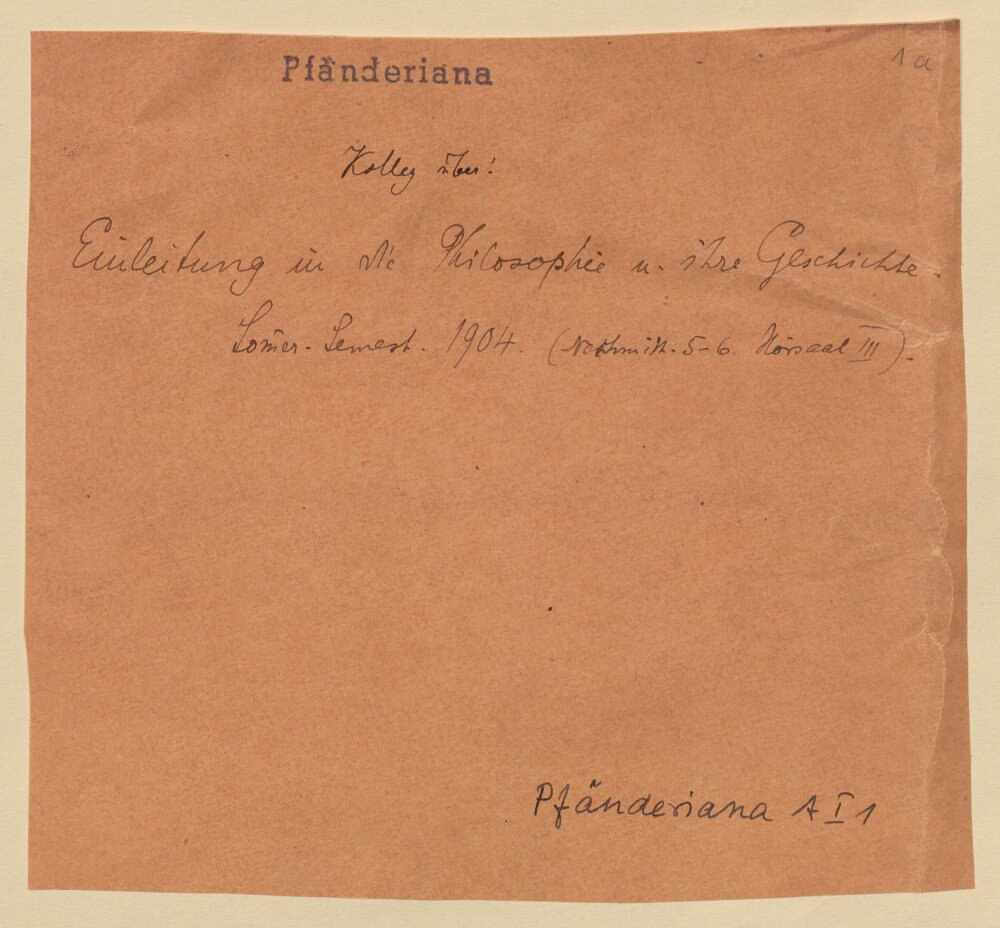 Pfänderiana
1a
Kolleg über:
Einleitung in die Philosophie u. ihre Geschichte.
Som̄er-Semest. 1904. (Nachmitt. 5-6. Hörsaal III).
Pfänderiana A I 1